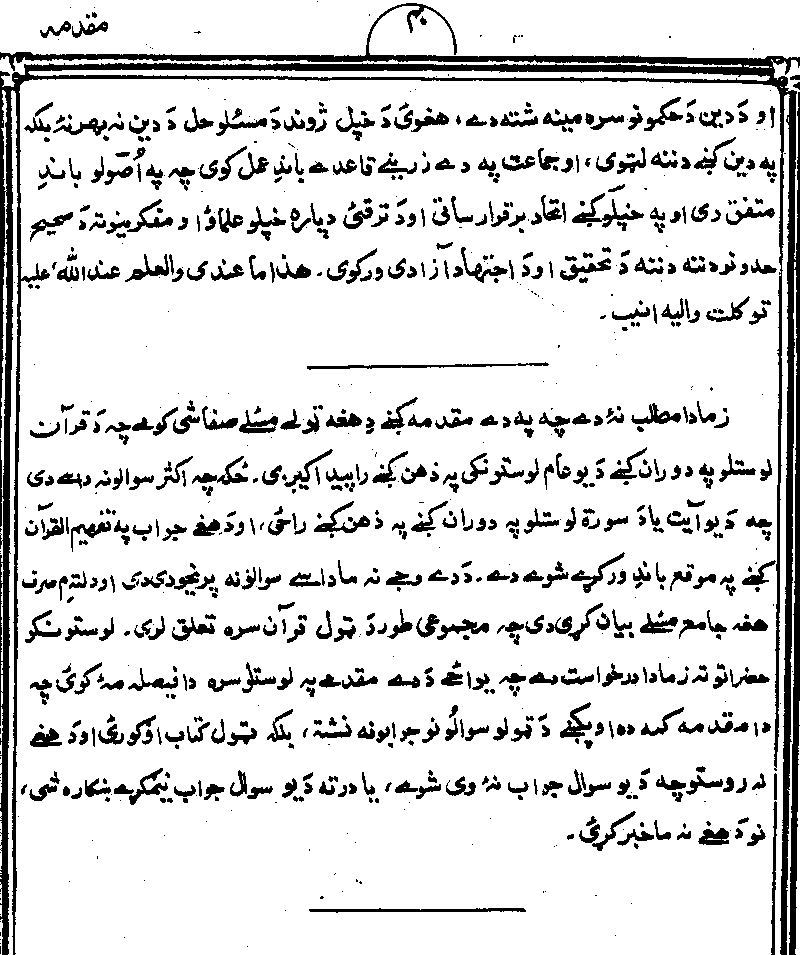 مقدمه
۴۰
او دَ دین دَ حکمونو سره مینه شته دے، هغوئ دَ خپل ژوند دَ مسئلو حل دَ دین نه بهر نۀ بلکه
په دین کښے دننه لټوی، او جماعت په دے زرینے قاعدے باندِ عمل کوی چه په اُصولو باندِ
متفق دی او په خپلو کښے اتحاد برقرار ساتی او دَ ترقئ دپاره خپلو علماؤ او مفکرینو ته دَ صحیح
حدونو دننه دننه دَ تحقیق او دَ اجتهاد آزادی ورکوی۔ هذا ما عندی والعلم عند الله، علیه
توکلت والیه انیب۔
زما دا مطلب نۀ دے چه په دے مقدمه کښے دِ هغه ټولے مسئلے صفا شی کومے چه دَ قرآن
لوستلو په دوران کښے دَ یو عام لوستونکی په ذهن کښے را پیدا کیږی۔ ځکه چه اکثر سوالونه داسے دی
چه دَ یو آیت یا دَ سورة لوستلو په دوران کښے په ذهن کښے راځی، او دَ هغے جواب په تفهیم القرآن
کښے په موقع باندِ ورکړے شوے دے۔ دَ دے وجے نه ما داسے سوالونه پریخودی دی او دلته مِ صرف
هغه جامع مسئلے بیان کړی دی چه مجموعی طور دَ ټول قرآن سره تعلق لری۔ لوستونکو
حضراتو ته زما دا درخواست دے چه یواځے دَ دے مقدمے په لوستلو سره دا فیصله مۀ کوئ چه
دا مقدمه کمه ده او پکښے دَ ټولو سوالُونو جوابونه نشته، بلکه ټول کتاب اوګورئ او دَ هغے
نه روستو چه دَ یو سوال جواب نۀ وی شوے، یا درته دَ یو سوال جواب نیمګړے ښکاره شی،
نو دَ هغے نه ما خبر کړئ۔